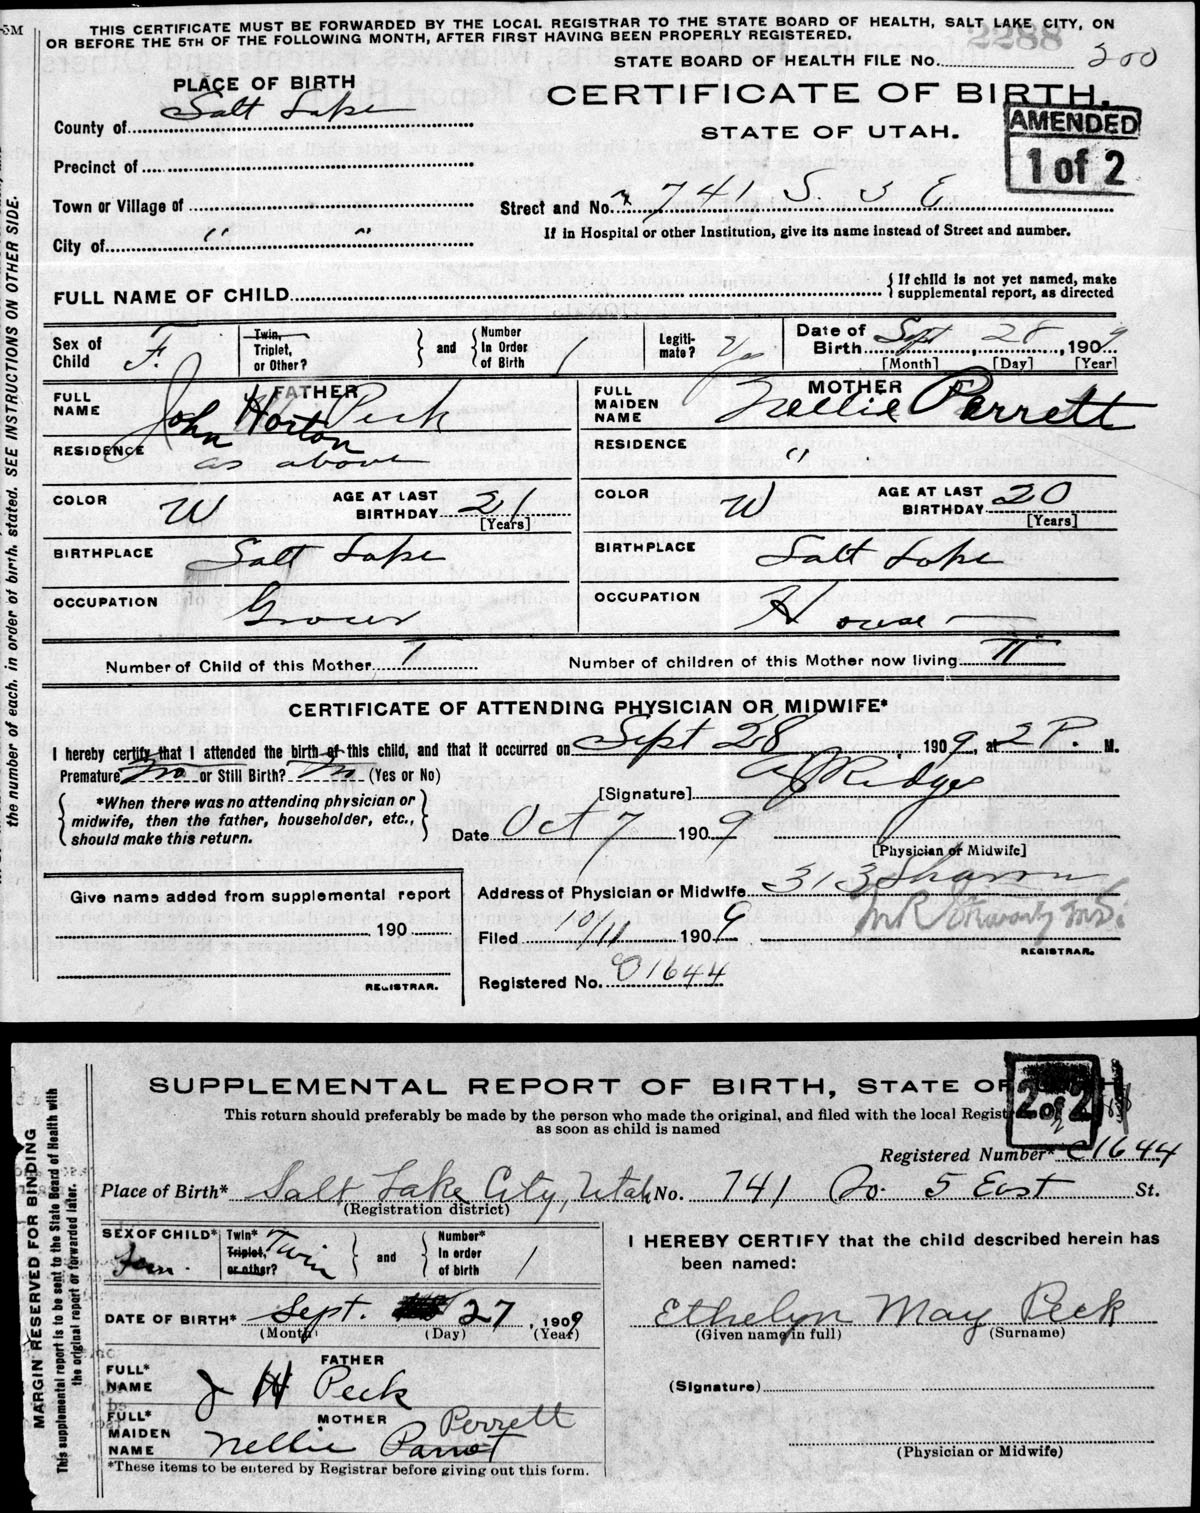 THIS CERTIFICATE MUST BE FORWARDED BY THE LOCAL REGISTRAR TO THE STATE BOARD OF HEALTH, SALT LAKE CITY, ON
OR BEFORE THE 5TH OF THE FOLLOWING MONTH, AFTER FIRST HAVING BEEN PROPERLY REGISTERED.
2288
STATE BOARD OF HEALTH FILE No. 200
PLACE OF BIRTH
CERTIFICATE OF BIRTH.
County of Salt Lake
STATE OF UTAH.
AMENDED
1 of 2
Precinct of
Town or Village of
Street and No. 741 S. 5 E
City of " "
If in Hospital or other Institution, give its name instead of Street and number.
FULL NAME OF CHILD
If child is not yet named, make supplemental report, as directed
Sex of Child F.
Twin, Triplet, or Other?
and
Number In Order of Birth 1
Legitimate? Yes
Date of Birth Sept, 28, 1909
[Month] [Day] [Year]
FATHER
FULL NAME John Horton Peck
MOTHER
FULL MAIDEN NAME Nellie Perrett
RESIDENCE as above
RESIDENCE "
COLOR W
AGE AT LAST BIRTHDAY 21 [Years]
COLOR W
AGE AT LAST BIRTHDAY 20 [Years]
BIRTHPLACE Salt Lake
BIRTHPLACE Salt Lake
OCCUPATION Grocer
OCCUPATION House
Number of Child of this Mother I
Number of children of this Mother now living II
CERTIFICATE OF ATTENDING PHYSICIAN OR MIDWIFE*
I hereby certify that I attended the birth of this child, and that it occurred on Sept 28 1909, at 2 P. M.
Premature No or Still Birth? No (Yes or No)
[Signature] Ridges
*When there was no attending physician or
midwife, then the father, householder, etc.,
should make this return.
Date Oct 7 1909
[Physician or Midwife]
Give name added from supplemental report
190
REGISTRAR.
Address of Physician or Midwife 313 Sharon
Filed 10/11 1909
REGISTRAR.
Registered No. 01644
the number of each, in order of birth, stated. SEE INSTRUCTIONS ON OTHER SIDE.
SUPPLEMENTAL REPORT OF BIRTH, STATE OF
2 of 2
This return should preferably be made by the person who made the original, and filed with the local
as soon as child is named
Registered Number* 01644
Place of Birth* Salt Lake City, Utah No. 741 So. 5 East St.
(Registration district)
SEX OF CHILD* Fem.
Twin* Triplet, or other? Twin
and
Number* In order of birth 1
I HEREBY CERTIFY that the child described herein has
been named:
DATE OF BIRTH* Sept. 27, 1909
(Month) (Day) (Year)
Ethelyn May Peck
(Given name in full) (Surname)
FATHER
FULL* NAME J H Peck
(Signature)
MOTHER
FULL* MAIDEN NAME Nellie Parrot Perrett
(Physician or Midwife)
*These items to be entered by Registrar before giving out this form.
MARGIN RESERVED FOR BINDING
This supplemental report is to be sent to the State Board of Health with
the original report or forwarded later.